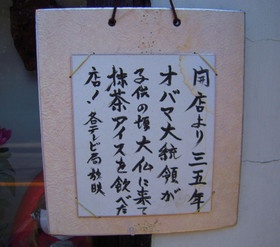 開店より三五年
オバマ大統領が
子供の頃大仏に来て
抹茶アイスを飲べた
店！各テレビ局放映